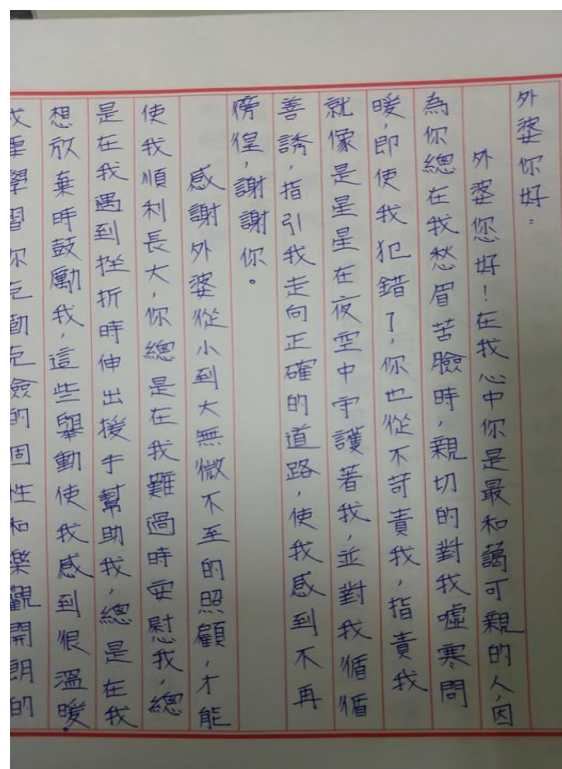 外婆你好：
外婆您好！在我心中你是最和藹可親的人，因
為你總在我愁眉苦臉時，親切的對我噓寒問
暖，即使我犯錯了，你也從不苛責我，指責我
就像是星星在夜空中守護著我，並對我循循
善誘，指引我走向正確的道路，使我感到不再
徬徨，謝謝你。
感謝外婆從小到大無微不至的照顧，才能
使我順利長大，你總是在我難過時安慰我，總
是在我遇到挫折時伸出援手幫助我，總是在我
想放棄時鼓勵我，這些舉動使我感到很溫暖。
學習你克勤克儉的固性和樂觀開朗的